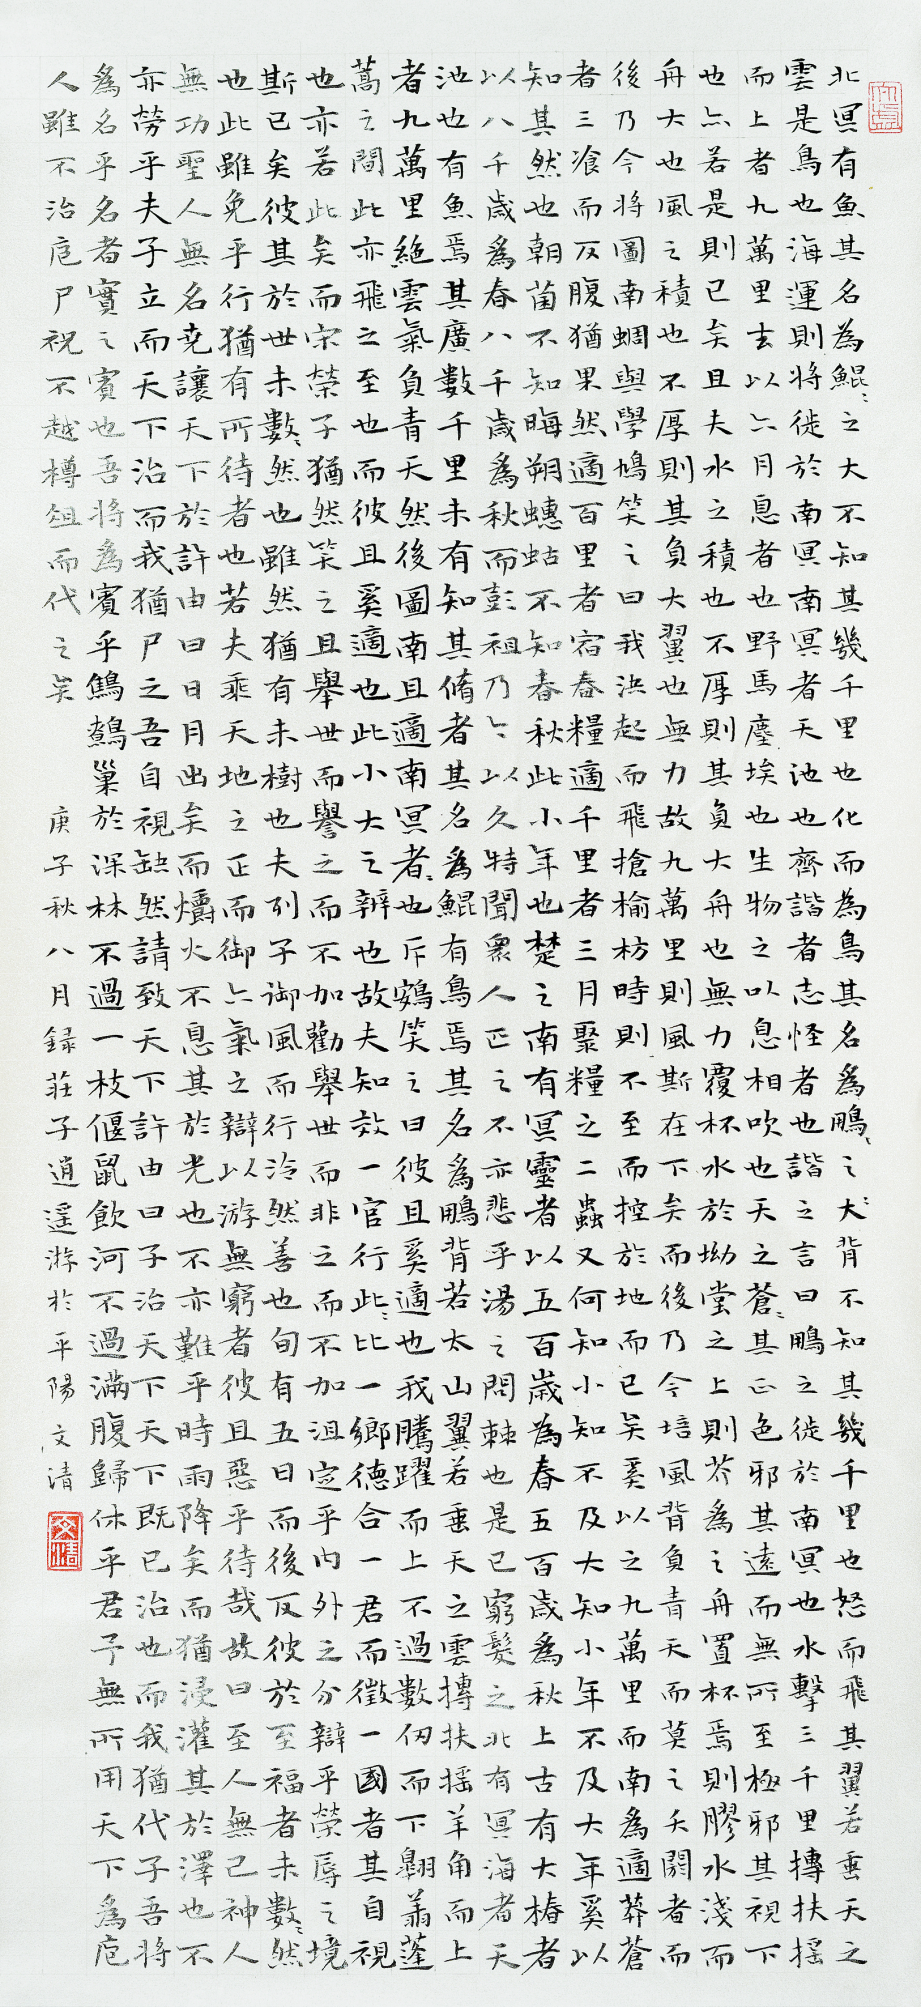 北冥有魚其名為鯤〻之大不知其幾千里也化而為鳥其名為鵬〻之大背不知其幾千里也怒而飛其翼若垂天之
雲是鳥也海運則將徙於南冥南冥者天池也齊諧者志怪者也諧之言曰鵬之徙於南冥也水擊三千里摶扶搖
而上者九萬里去以六月息者也野馬塵埃也生物之以息相吹也天之蒼〻其正色邪其遠而無所至極邪其視下
也亦若是則已矣且夫水之積也不厚則其負大舟也無力覆杯水於坳堂之上則芥為之舟置杯焉則膠水淺而
舟大也風之積也不厚則其負大翼也無力故九萬里則風斯在下矣而後乃今培風背負青天而莫之夭閼者而
後乃今將圖南蜩與學鳩笑之曰我決起而飛搶榆枋時則不至而控於地而已矣奚以之九萬里而南為適莽蒼
者三飡而反腹猶果然適百里者宿舂糧適千里者三月聚糧之二蟲又何知小知不及大知小年不及大年奚以
知其然也朝菌不知晦朔蟪蛄不知春秋此小年也楚之南有冥靈者以五百歲為春五百歲為秋上古有大椿者
以八千歲為春八千歲為秋而彭祖乃今以久特聞衆人匹之不亦悲乎湯之問棘也是已窮髮之北有冥海者天
池也有魚焉其廣數千里未有知其脩者其名為鯤有鳥焉其名為鵬背若太山翼若垂天之雲摶扶搖羊角而上
者九萬里絕雲氣負青天然後圖南且適南冥者〻也斥鴳笑之曰彼且奚適也我騰躍而上不過數仞而下翱翔蓬
蒿之間此亦飛之至也而彼且奚適也此小大之辯也故夫知效一官行此〻比一鄉德合一君而徵一國者其自視
也亦若此矣而宋榮子猶然笑之且舉世而譽之而不加勸舉世而非之而不加沮定乎內外之分辯乎榮辱之境
斯已矣彼其於世未數〻然也雖然猶有未樹也夫列子御風而行泠然善也旬有五日而後反彼於至福者未數〻然
也此雖免乎行猶有所待者也若夫乘天地之正而御六氣之辯以游無窮者彼且惡乎待哉故曰至人無己神人
無功聖人無名堯讓天下於許由曰日月出矣而爝火不息其於光也不亦難乎時雨降矣而猶浸灌其於澤也不
亦勞乎夫子立而天下治而我猶尸之吾自視缺然請致天下許由曰子治天下天下既已治也而我猶代子吾將
為名乎名者實之賓也吾將為賓乎鷦鷯巢於深林不過一枝偃鼠飲河不過滿腹歸休乎君予無所用天下為庖
人雖不治庖尸祝不越樽俎而代之矣 庚子秋八月錄莊子逍遙游於平陽文清
文清